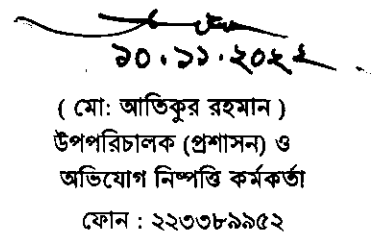 ১০.১১.২০২২
( মো: আতিকুর রহমান )
উপপরিচালক (প্রশাসন) ও
অভিযোগ নিষ্পত্তি কর্মকর্তা
ফোন : ২২৩৩৮৯৯৫২